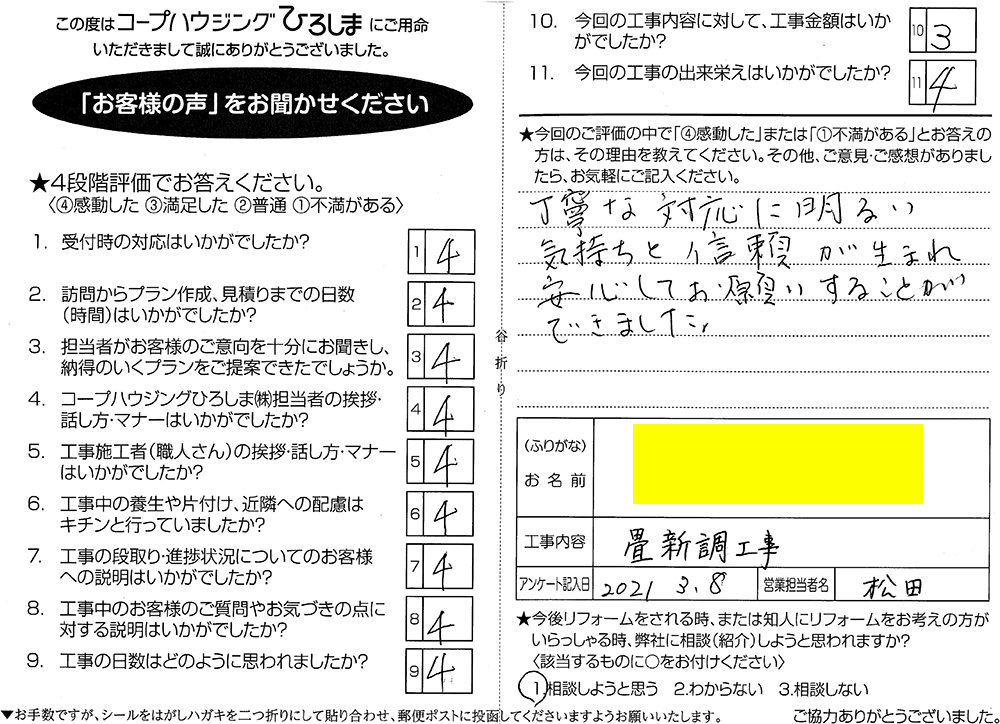 この度はコープハウジングひろしまにご用命
いただきまして誠にありがとうございました。
「お客様の声」をお聞かせください
★4段階評価でお答えください。
〈④感動した ③満足した ②普通 ①不満がある〉
1. 受付時の対応はいかがでしたか?
1 4
2. 訪問からプラン作成、見積りまでの日数
(時間)はいかがでしたか?
2 4
3. 担当者がお客様のご意向を十分にお聞きし、
納得のいくプランをご提案できたでしょうか。
3 4
4. コープハウジングひろしま㈱担当者の挨拶・
話し方・マナーはいかがでしたか?
4 4
5. 工事施工者(職人さん)の挨拶・話し方・マナー
はいかがでしたか?
5 4
6. 工事中の養生や片付け、近隣への配慮は
キチンと行っていましたか?
6 4
7. 工事の段取り・進捗状況についてのお客様
への説明はいかがでしたか?
7 4
8. 工事中のお客様のご質問やお気づきの点に
対する説明はいかがでしたか?
8 4
9. 工事の日数はどのように思われましたか?
9 4
▼お手数ですが、シールをはがしハガキを二つ折りにして貼り合わせ、郵便ポストに投函してくださいますようお願いいたします。
谷折り
10. 今回の工事内容に対して、工事金額はいか
がでしたか?
10 3
11. 今回の工事の出来栄えはいかがでしたか?
11 4
★今回のご評価の中で「④感動した」または「①不満がある」とお答えの
方は、その理由を教えてください。その他、ご意見・ご感想がありまし
たら、お気軽にご記入ください。
丁寧な対応に明るい
気持ちと信頼が生まれ
安心してお願いすることが
できました。
(ふりがな)
お名前
工事内容 畳新調工事
アンケート記入日 2021 3.8 営業担当者名 松田
★今後リフォームをされる時、または知人にリフォームをお考えの方が
いらっしゃる時、弊社に相談(紹介)しようと思われますか?
〈該当するものに○をお付けください〉
1.相談しようと思う 2.わからない 3.相談しない
ご協力ありがとうございました。